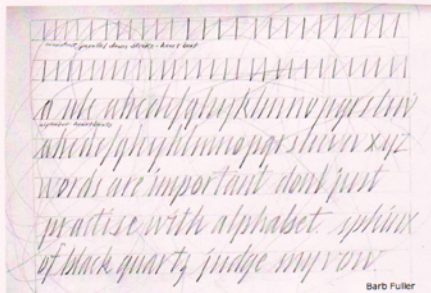 a abc abcdefghijklmnopqrstuv
abcdefghijklmnopqrstuvw xyz
words are important dont just
practise with alphabet. sphinx
of black quartz judge my vow.
Barb Fuller